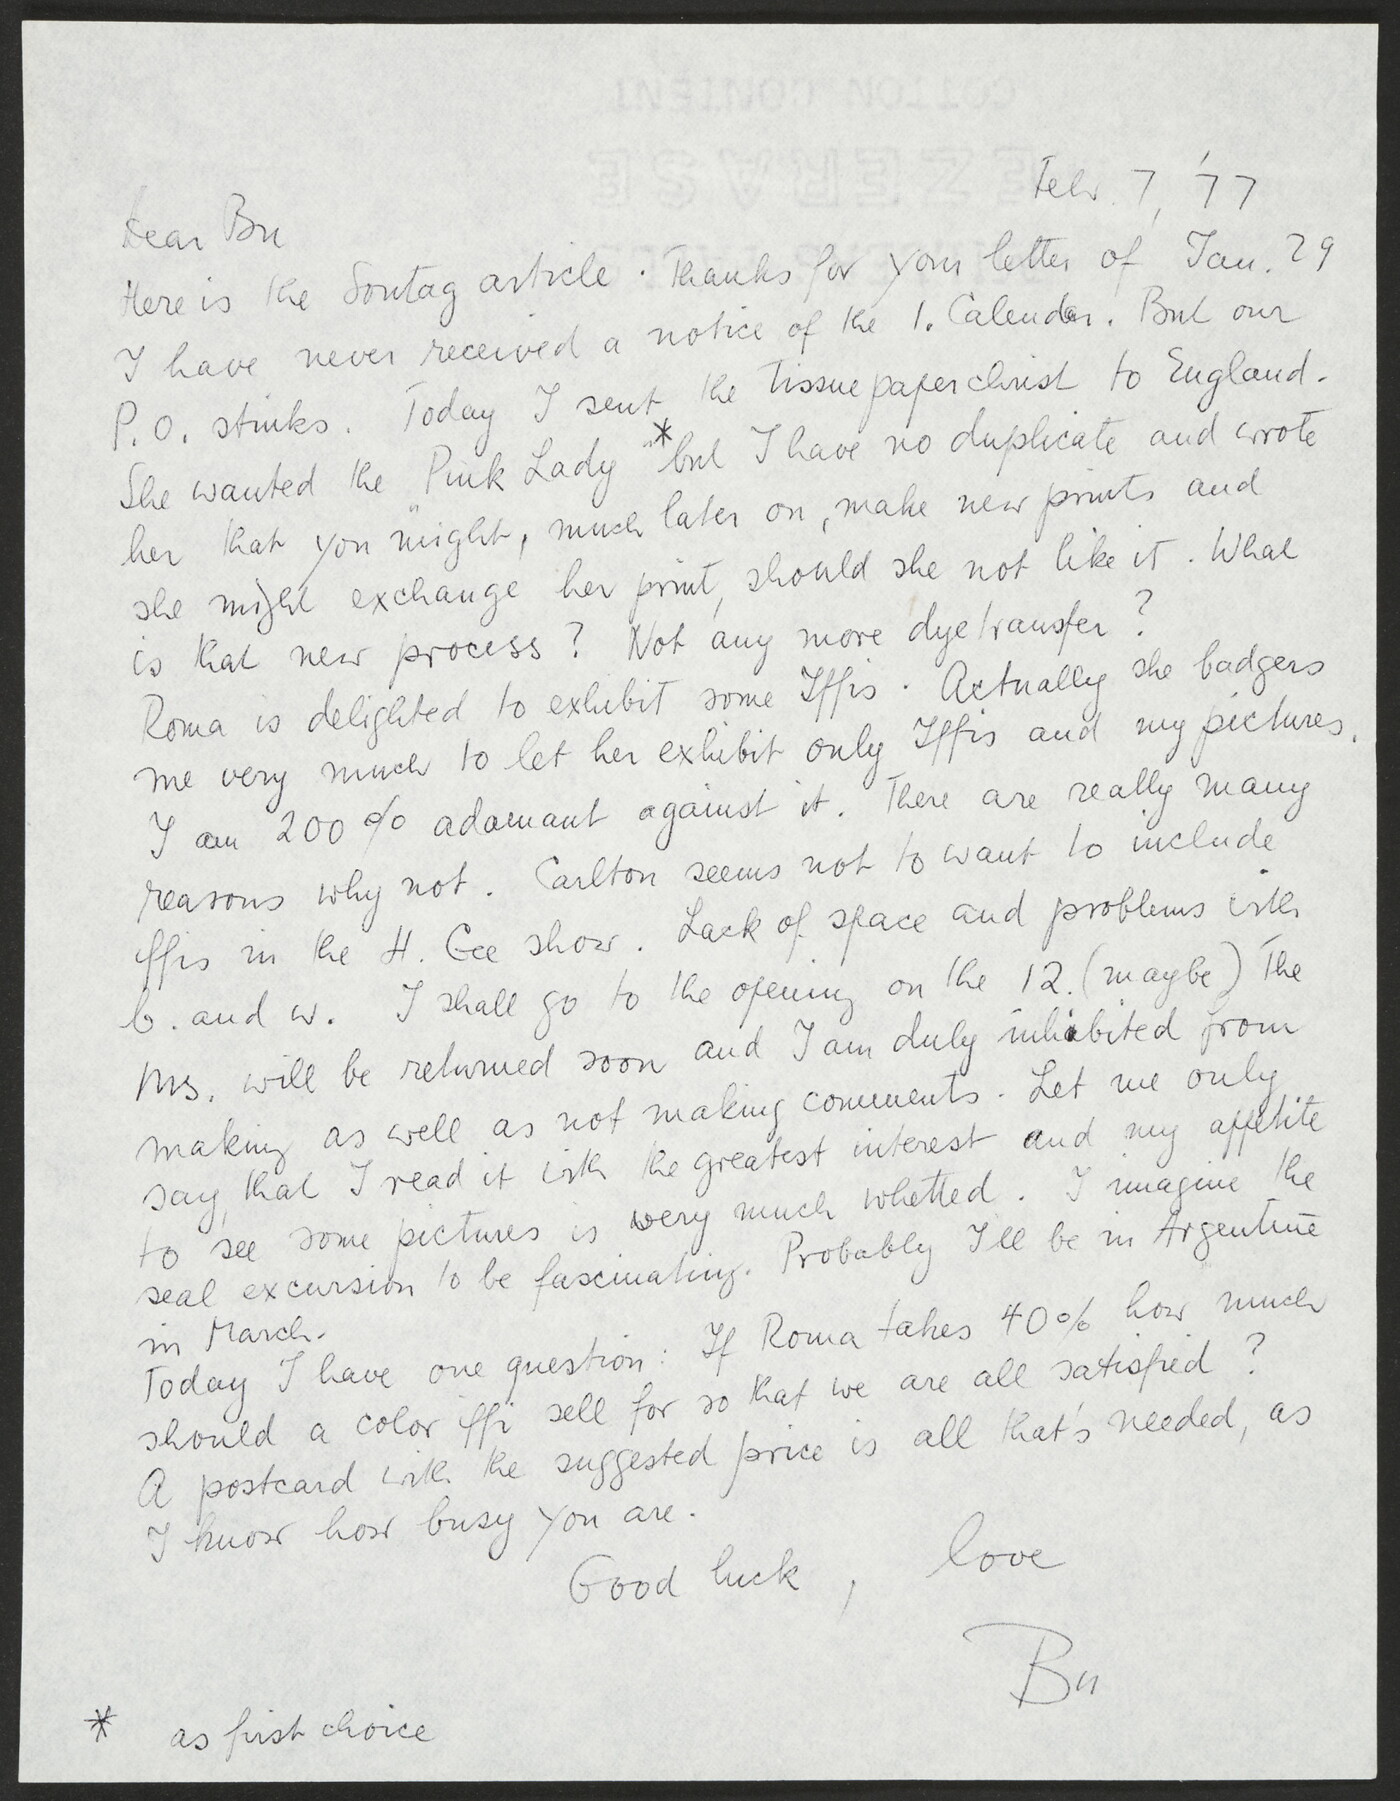 Feb. 7, '77
Dear Bu
Here is the Sontag article. Thanks for your letter of Jan. 29
I have never received a notice of the 1. Calendar. But our
P.O. stinks. Today I sent the tissuepaperchrist to England.
She wanted the "Pink Lady"* but I have no duplicate and wrote
her that you might, much later on, make new prints and
she might exchange her print, should she not like it. What
is that new process? Not any more dyetransfer?
Roma is delighted to exhibit some Iffis. Actually she badgers
me very much to let her exhibit only Iffis and my pictures.
I am 200% adamant against it. There are really many
reasons why not. Carlton seems not to want to include
iffis in the H. Gee show. Lack of space and problems with
b. and w. I shall go to the opening on the 12. (maybe) The
Ms. will be returned soon and I am duly inhibited from
making as well as not making comments. Let me only
say, that I read it with the greatest interest and my appetite
to see some pictures is very much whetted. I imagine the
seal excursion to be fascinating. Probably I'll be in Argentine
in March.
Today I have one question: If Roma takes 40% how much
should a color iffi sell for so that we are all satisfied?
A postcard with the suggested price is all that's needed, as
I know how busy you are.
Good luck, love
Bu
* as first choice